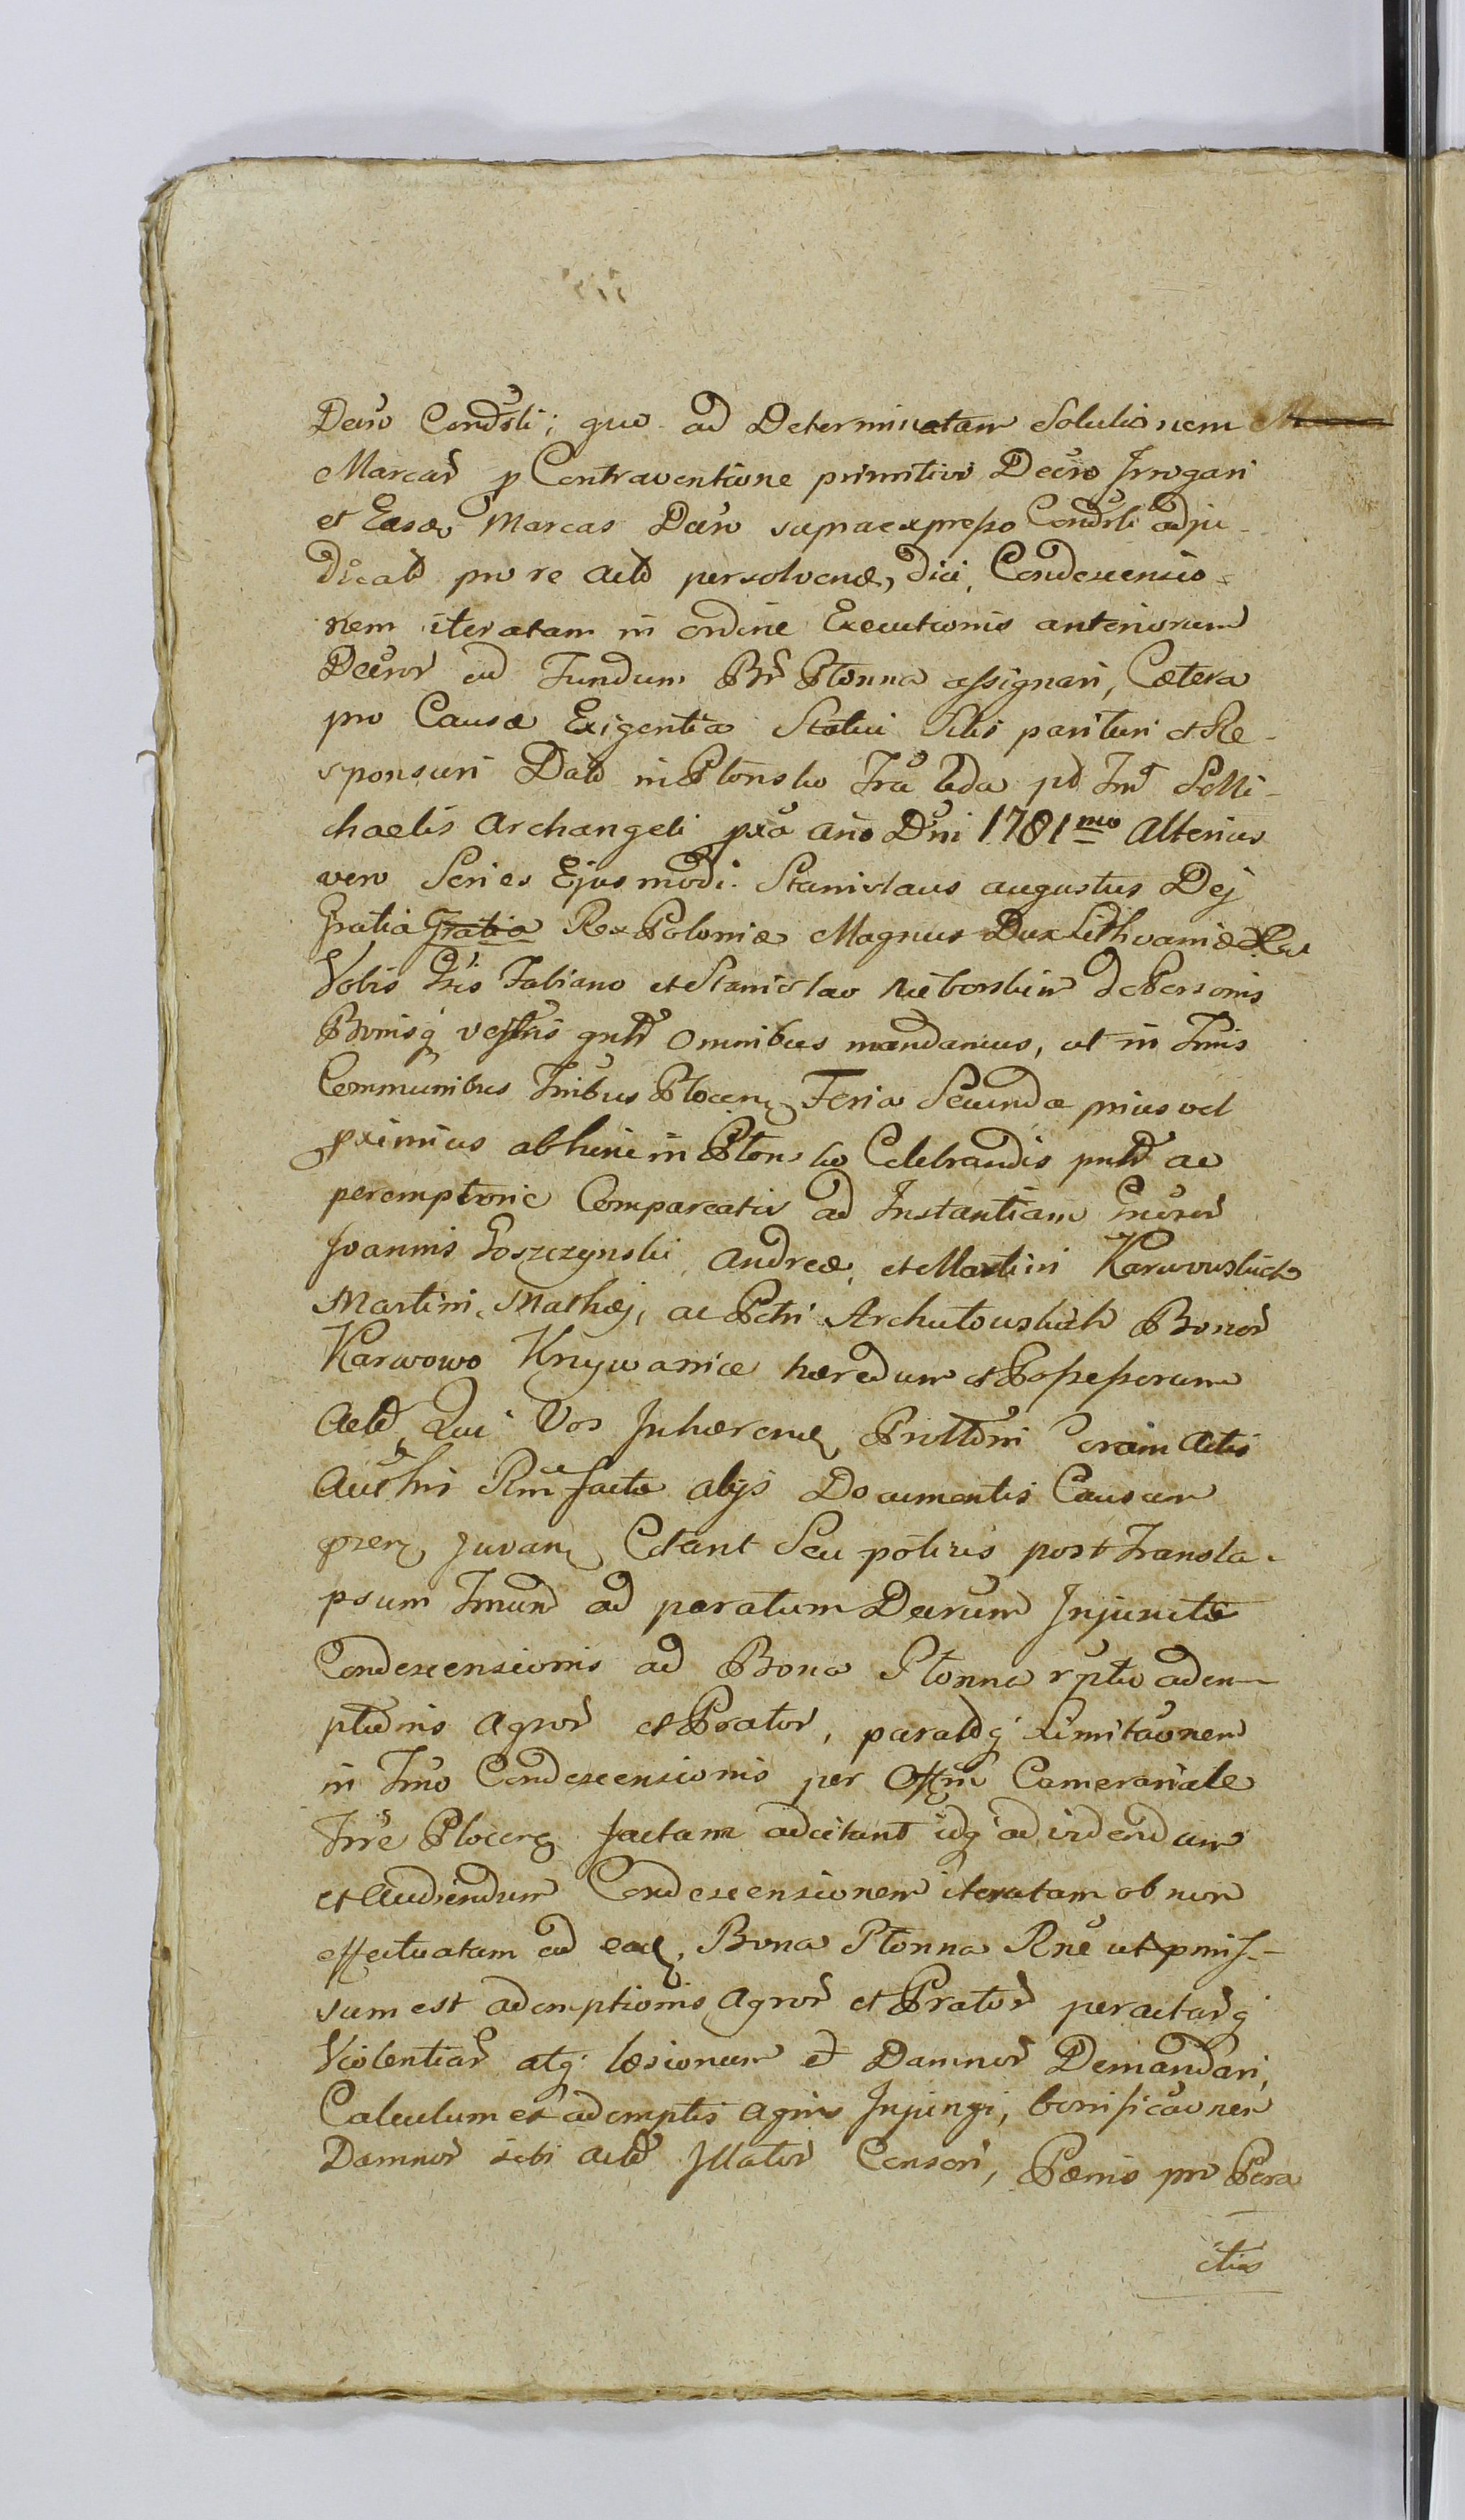 Decro Condsli; quo ad Determinatam Solutionem
Marcar̄ p Contraventione primitivo Decro Irrogari
et Easd̄ Marcas Decro supraexpresso Condsli adju-
dicatas pro re Act̄ persolvend̄, dici, Condescensio-
nem iteratam in ordine Executionis anteriorum
Decror̄ ad Fundum Br̄ Płonna assignari, Cætera
pro Causæ Exigentia Statui Sitis parituri et Re-
sponsuri Dat̄ in Płonsko Fra 2da pt̄ Fm̄ S Mi-
chaelis Archangeli pxa Año Dñi 1781mo Alterius
vero Series Ejusmodi. Stanislaus augustus Dej
Gratia Gratia Rex Poloniæ Magnus Dux Lithvaniæ
Vobis Fabiano et Stanislao Nieborskim de Personis
Bonisq̄ vestris gnlr̄ Omnibus mandamus, ut in Tmis
Communibus Tribus Plocen̄ Feria Secunda prius vel
pximius abhinc in Płonsko Celebrandis pntr̄ ac
peremptorie Compareatis ad Instantiam Gnror̄
Joannis Goszczynski, Andreæ, et Martini Karwowskich
Martini, Mathæj, ac Petri Archutowskich Bonor̄
Karwowo Krzywanice hæredum et Possessorum
Act̄ Qui Vos Inhæren̄ Prottoni coram Actis
Authis Rm factæ alijs Documentis Causam
pren̄ Juvan̄ Citant Seu potius post Transla-
psum Tmum ad paratum Decrum Injunctæ
Condescensionis ad Bona Płonna rptu adem-
ptionis Agror̄ et Prator̄, paratq̄ Limitaonem
in Tmo Condescensionis per Offm Camerariale
Trre Plocen̄ factam adcitant idq̄ ad videndum
et Audiendum Condescensionem iteratam ob non
effectuatam ad ead̄, Bona Płonna Rne ut pmis-
sum est ademptionis Agror̄ et Prator̄ peractarq̄
Violentiar̄ atq̄ læsionum et Damnor̄ Demandari,
Calculum ex ademptis Agris Injungi, bonificaonem
Damnor̄ sibi Act̄ Illator̄ Censeri, Pænis pro Pera
ctis